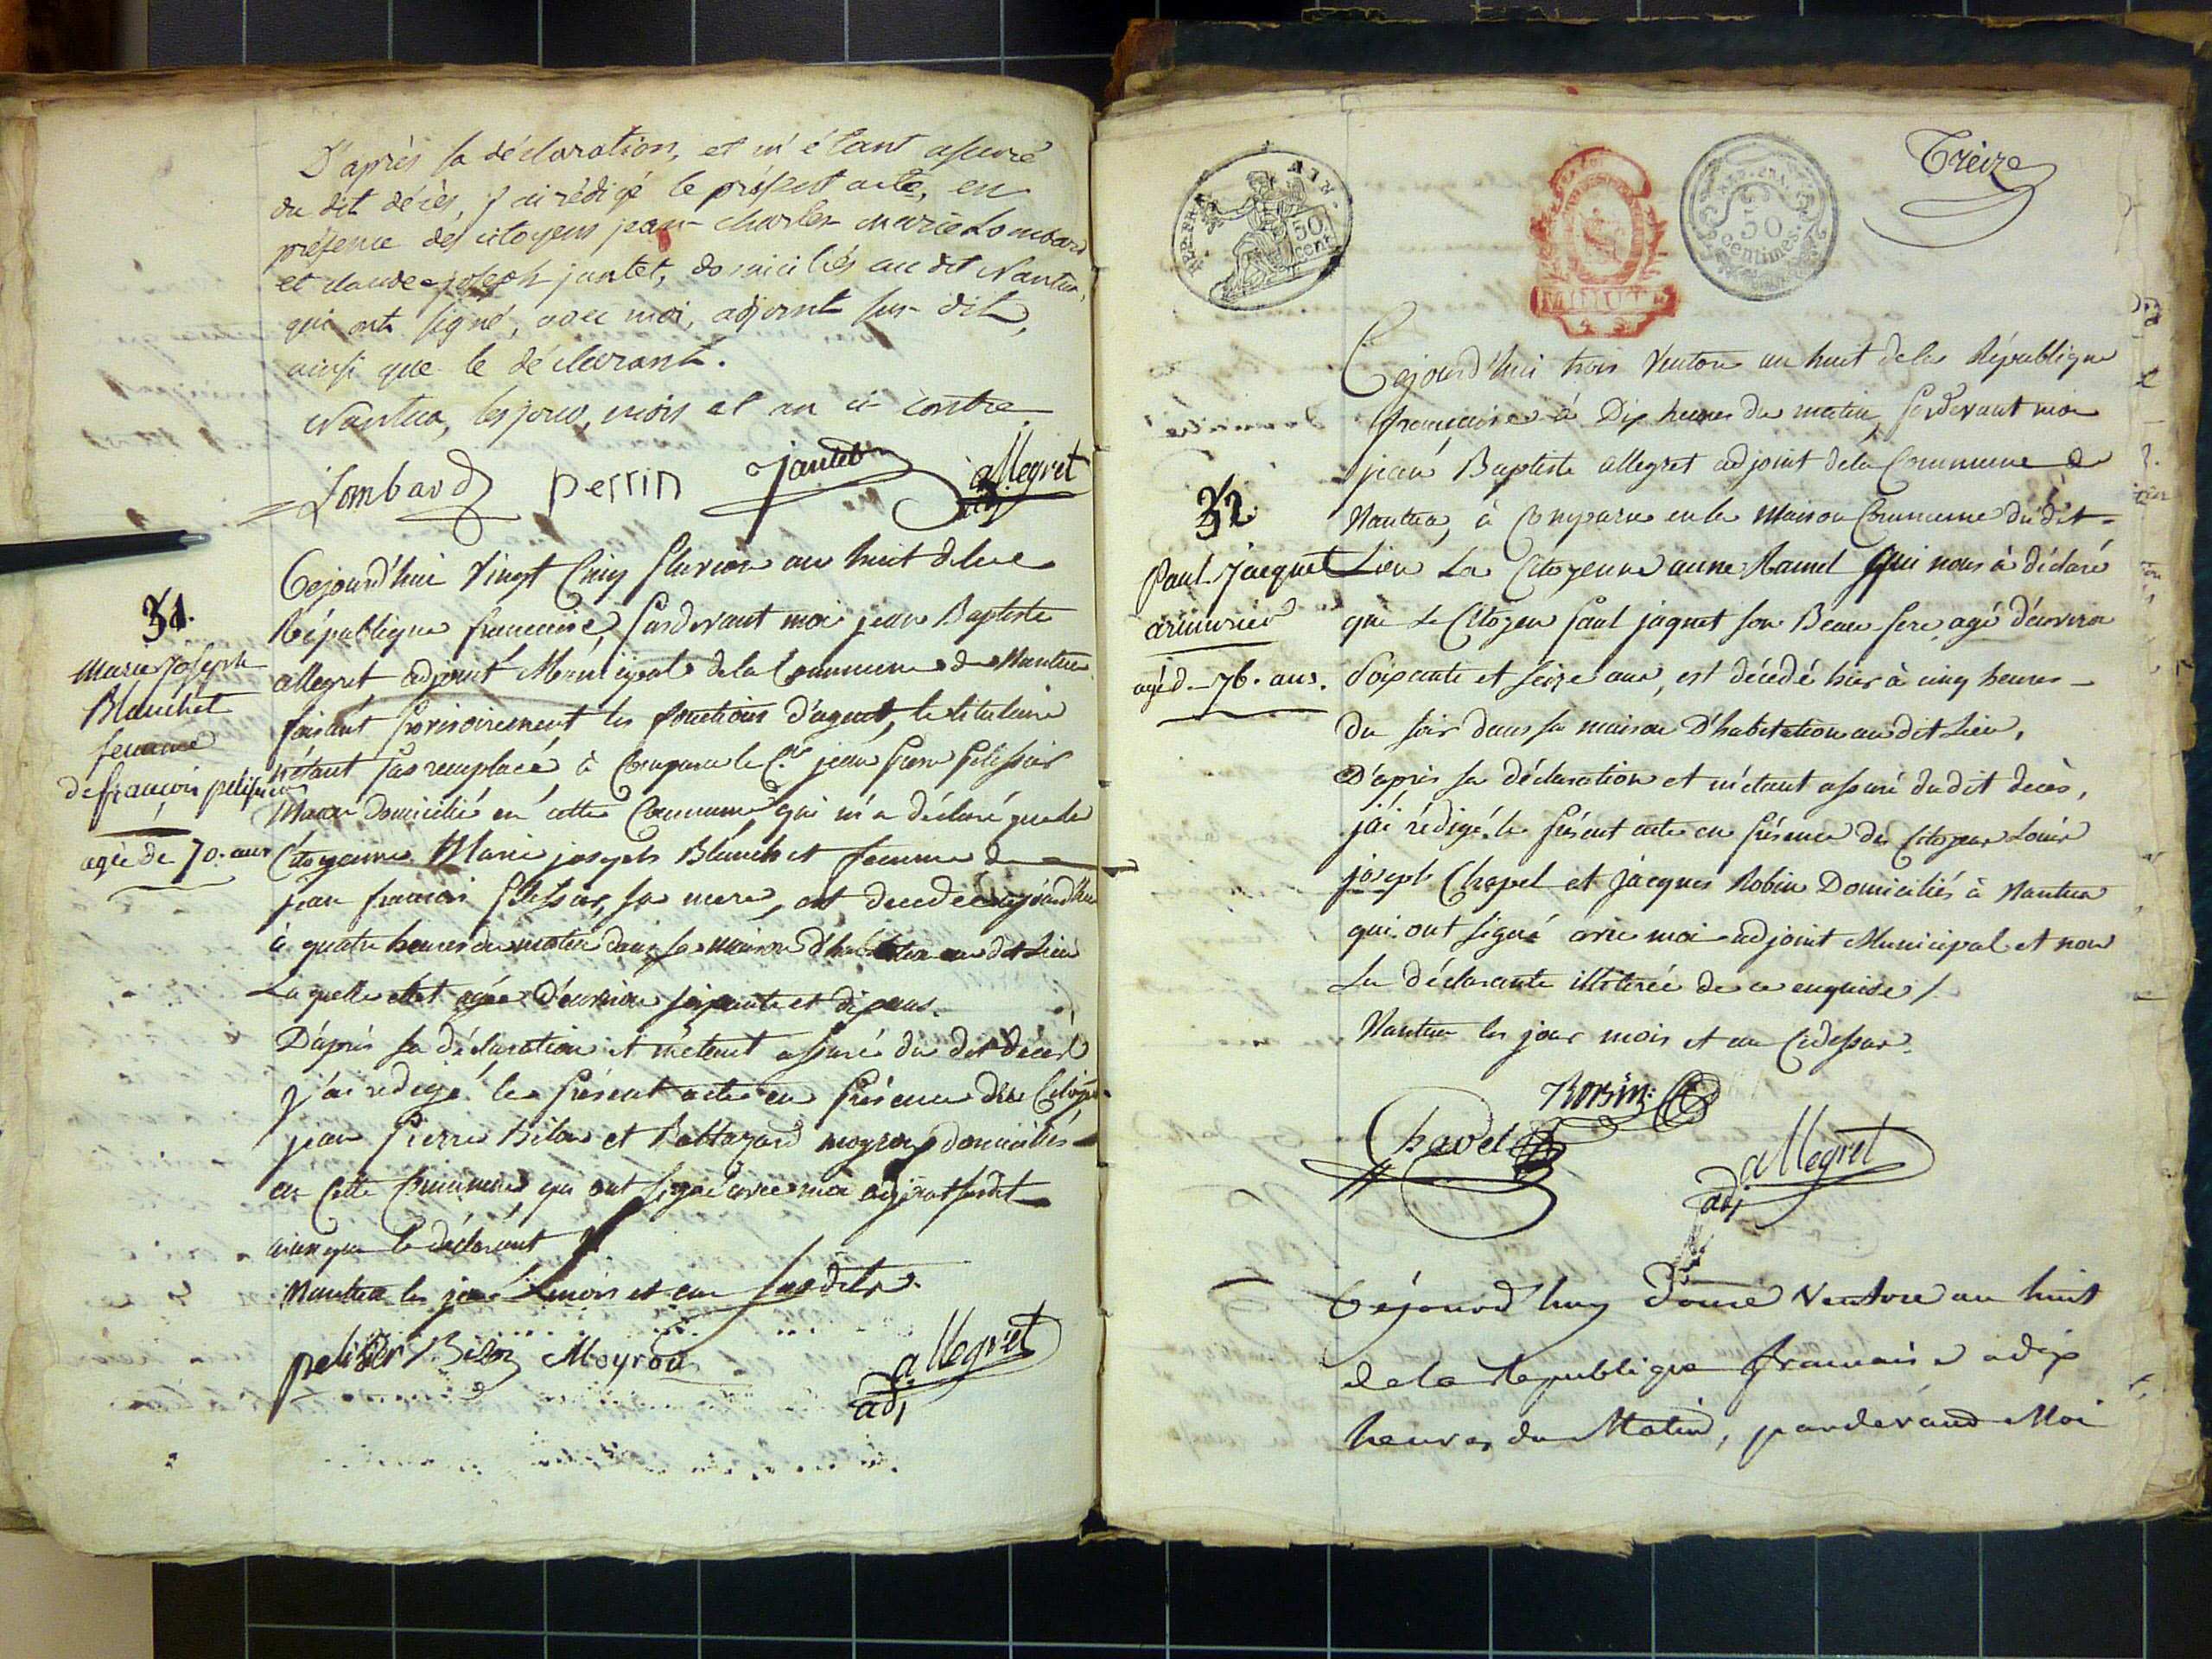 D'après sa déclaration, et m'étant assuré
du dit décès, j'ai rédigé le présent acte, en
présence des citoyens jean-charles-marie Lombard
et claude-joseph jantet, domiciliés au dit Nantua,
qui ont signé, avec moi, adjoint sus-dit,
ainsi que le déclarant.
Nantua, les jour, mois et an ci-contre
Lombard perrin Jantet allegret
adj
31.
Marie Joseph
Blanchet
femme
de françois pelissier
agée de 70. ans
Cejourd'hui Vingt Cinq pluviose an huit de la
République francaise, pardevant moi jean Baptiste
allegret adjoint Municipal de la Commune de Nantua
faisant provisoirement les fonctions d'agent, le titulaire
n'étant pas remplacé, à Comparu le C.en jean
domicilié en cette Commune qui m'a déclaré que la
Citoyenne Marie joseph Blanchet femme de
jean francois pelissier, sa mere, est decedée aujourd'hui
à quatre heures du matin dans sa maison d'habitation au dit Lieu
Laquelle etoit agée d'environ soixante et dix ans.
D'après sa déclaration et m'étant assuré du dit décès
j'ai redigé le présent acte en présence des Citoyens
jean pierre Bilon et Baltazard moyrod domiciliés
en cette Commune, qui ont signé avec moi adjoint susdit
ainsi que le déclarant
Nantua les jour mois et an susdits.
pelisser Bilon Moyrod allegret
adj
AIN
50
cent
MINUTE
50
centimes
Treize
Cejourd'hui trois Ventose an huit de la République
francaise à Dix heures du matin, pardevant moi
jean Baptiste allegret adjoint de la Commune de
Nantua, à Comparu en la Maison Commune du dit
32.
Paul Jacquet
armurier
agé d- 76. ans.
Lieu La Citoyenne anne Ramel qui nous à déclaré
que Le Citoyen paul jaquet son Beau pere, agé d'environ
Soixante et seize ans, est décedé hier à cinq heures
du soir dans sa maison D'habitation au dit Lieu,
D'après sa déclaration et m'étant assuré du dit decès,
j'ai rédigé le présent acte en présence des Citoyens Louis
joseph Chapel et Jacques Robin Domiciliés à Nantua
qui ont signé avec moi adjoint Municipal et non
La déclarante illitérée de ce enquise /.
Nantua les jour mois et an Cidessus.
Robin
Chapel allegret
adj
Cejourd'huy Douze Ventose an huit
de la Republique francaise a dix
heures du Matin, pardevand Moi